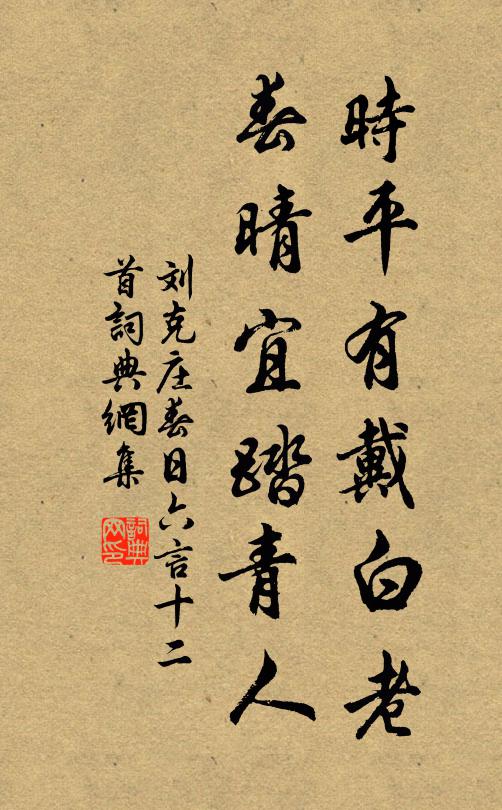 時平有戴白老
春晴宜踏青人
刘克庄春日六言十二
首詞典網集
詞典网印